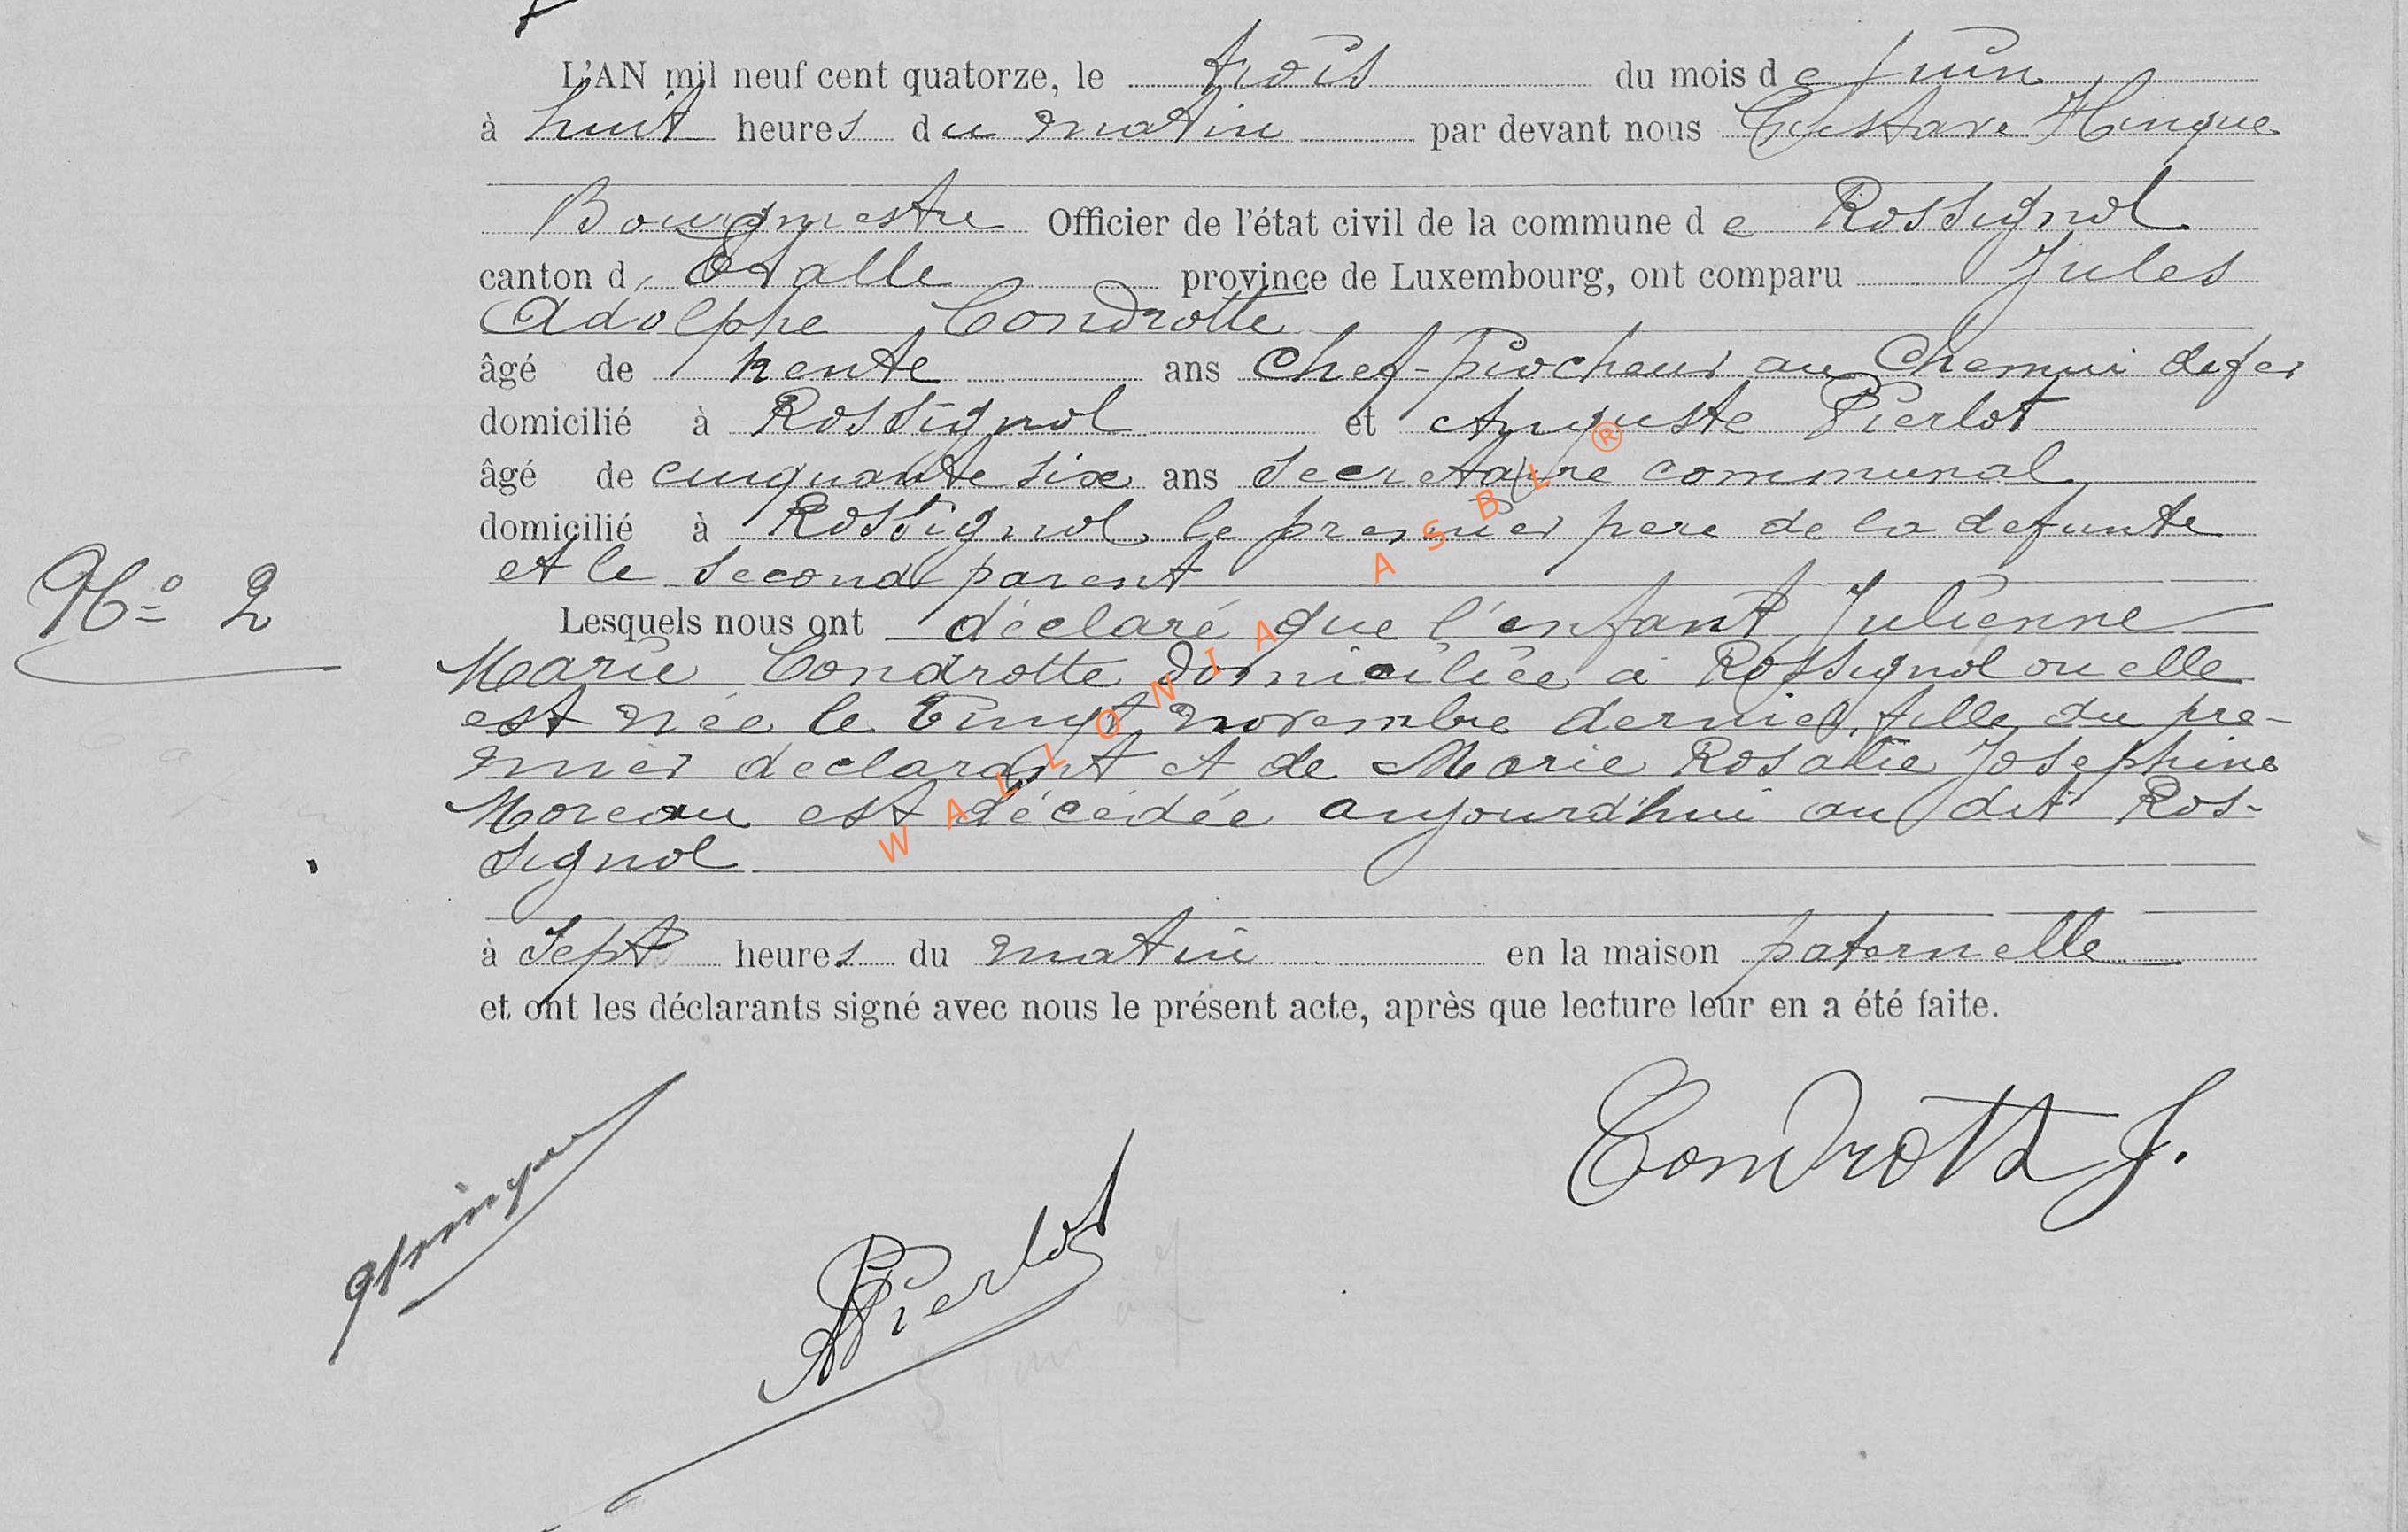 L'AN mil neuf cent quatorze, le trois du mois de Juin
à huit heures du matin par devant nous Gustave Hinque
Bourgmestre Officier de l'état civil de la commune de Rossignol
canton d'Etalle province de Luxembourg, ont comparu Jules
Adolphe Condrotte
âgé de trente ans Chef-piocheur au Chemin de fer
domicilié à Rossignol et Auguste Pierlot
âgé de cinquante six ans secretaire communal
domicilié à Rossignol le premier pere de la defunte
et le second parent
No 2
Lesquels nous ont déclaré que l'enfant Julienne
Marie Condrotte domiciliée à Rossignol ou elle
est née le vingt novembre dernier, fille du pre-
mier declarant et de Marie Rosalie Josephine
Moreau est décédée aujourd'hui au dit Ros-
signol
à sept heures du matin en la maison paternelle
et ont les déclarants signé avec nous le présent acte, après que lecture leur en a été faite.
Condrotte J.
GHinque
APierlot
WALLONIA ASBL ®